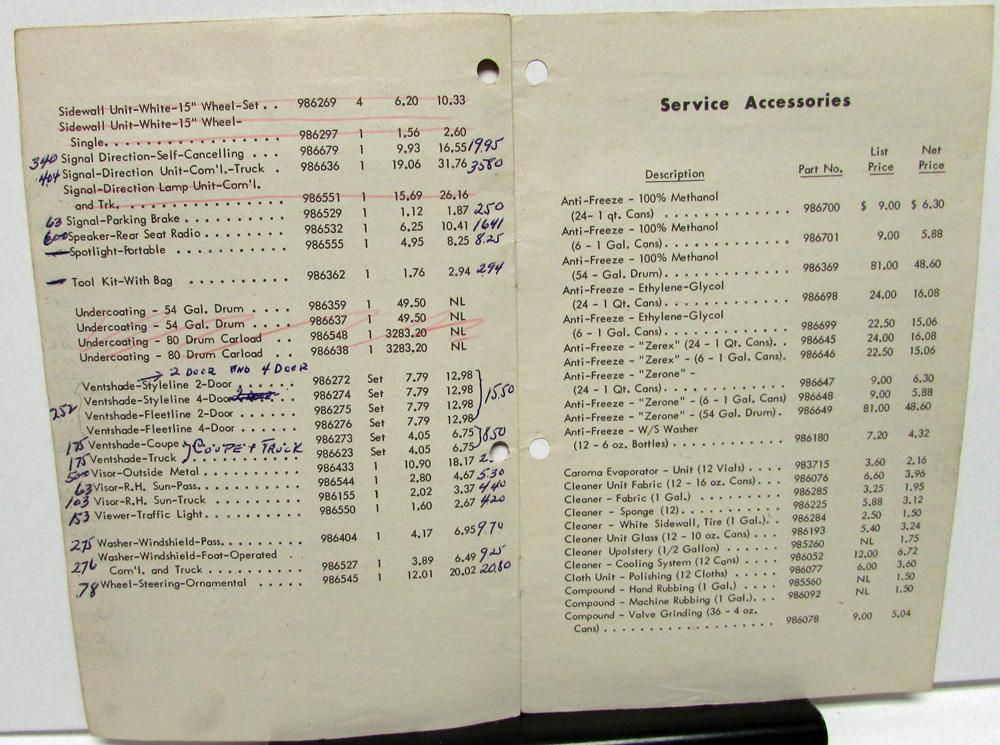 Sidewall Unit-White-15" Wheel-Set . . 986269 4 6.20 10.33
Sidewall Unit-White-15" Wheel-
Single. . . . . . . . . . . . . . . . . 986297 1 1.56 2.60
340 Signal Direction-Self-Cancelling . . . 986679 1 9.93 16.55 1995
404 Signal-Direction Unit-Com'l.-Truck . 986636 1 19.06 31.76 3580
Signal-Direction Lamp Unit-Com'l.
and Trk. . . . . . . . . . . . . . . . 986551 1 15.69 26.16
63 Signal-Parking Brake . . . . . . . . . 986529 1 1.12 1.87 250
600 Speaker-Rear Seat Radio . . . . . . . 986532 1 6.25 10.41 1641
Spotlight-Portable . . . . . . . . . . . 986555 1 4.95 8.25 8.25
Tool Kit-With Bag . . . . . . . . . . 986362 1 1.76 2.94 294
Undercoating - 54 Gal. Drum . . . . 986359 1 49.50 NL
Undercoating - 54 Gal. Drum . . . . 986637 1 49.50 NL
Undercoating - 80 Drum Carload . . 986548 1 3283.20 NL
Undercoating - 80 Drum Carload . . 986638 1 3283.20 NL
2 DOOR AND 4 DOOR
Ventshade-Styleline 2-Door . . . . . . 986272 Set 7.79 12.98
Ventshade-Styleline 4-Door 986274 Set 7.79 12.98 1550
252 Ventshade-Fleetline 2-Door . . . . . . 986275 Set 7.79 12.98
Ventshade-Fleetline 4-Door . . . . . . 986276 Set 7.79 12.98
175 Ventshade-Coupe COUPE & TRUCK 986273 Set 4.05 6.75 850
175 Ventshade-Truck . . . . . . . . . . . 986623 Set 4.05 6.75
500 Visor-Outside Metal . . . . . . . . . . 986433 1 10.90 18.17
63 Visor-R.H. Sun-Pass. . . . . . . . . . 986544 1 2.80 4.67 530
103 Visor-R.H. Sun-Truck . . . . . . . . . 986155 1 2.02 3.37 440
153 Viewer-Traffic Light. . . . . . . . . . 986550 1 1.60 2.67 420
275 Washer-Windshield-Pass. . . . . . . . 986404 1 4.17 6.95 970
Washer-Windshield-Foot-Operated
276 Com'l. and Truck . . . . . . . . . . 986527 1 3.89 6.49 925
78 Wheel-Steering-Ornamental . . . . . 986545 1 12.01 20.02 2080
Service Accessories
List Net
Description Part No. Price Price
Anti-Freeze - 100% Methanol
(24- 1 qt. Cans) . . . . . . . . . . . . . . . . 986700 $ 9.00 $ 6.30
Anti-Freeze - 100% Methanol
(6 - 1 Gal. Cans). . . . . . . . . . . . . . . 986701 9.00 5.88
Anti-Freeze - 100% Methanol
(54 - Gal. Drum). . . . . . . . . . . . . . . 986369 81.00 48.60
Anti-Freeze - Ethylene-Glycol
(24 - 1 Qt. Cans). . . . . . . . . . . . . . . 986698 24.00 16.08
Anti-Freeze - Ethylene-Glycol
(6 - 1 Gal. Cans). . . . . . . . . . . . . . . 986699 22.50 15.06
Anti-Freeze - "Zerex" (24 - 1 Qt. Cans). . 986645 24.00 16.08
Anti-Freeze - "Zerex" - (6 - 1 Gal. Cans). 986646 22.50 15.06
Anti-Freeze - "Zerone" -
(24 - 1 Qt. Cans). . . . . . . . . . . . . . . 986647 9.00 6.30
Anti-Freeze - "Zerone" - (6 - 1 Gal. Cans) 986648 9.00 5.88
Anti-Freeze - "Zerone" - (54 Gal. Drum). . 986649 81.00 48.60
Anti-Freeze - W/S Washer
(12 - 6 oz. Bottles). . . . . . . . . . . . . . 986180 7.20 4.32
Caroma Evaporator - Unit (12 Vials) . . . . 983715 3.60 2.16
Cleaner Unit Fabric (12 - 16 oz. Cans) . . . 986076 6.60 3.96
Cleaner - Fabric (1 Gal.) . . . . . . . . . . 986285 3.25 1.95
Cleaner - Sponge (12). . . . . . . . . . . . 986225 5.88 3.12
Cleaner - White Sidewall, Tire (1 Gal.). . 986284 2.50 1.50
Cleaner Unit Glass (12 - 10 oz. Cans) . . . 986193 5.40 3.24
Cleaner Upolstery (1/2 Gallon) . . . . . . 985260 NL 1.75
Cleaner - Cooling System (12 Cans) . . . . 986052 12.00 6.72
Cloth Unit - Polishing (12 Cloths) . . . . . 986077 6.00 3.60
Compound - Hand Rubbing (1 Gal.) . . . . . 985560 NL 1.50
Compound - Machine Rubbing (1 Gal.). . . . 986092 NL 1.50
Compound - Valve Grinding (36 - 4 oz.
Cans) . . . . . . . . . . . . . . . . . . . . . 986078 9.00 5.04